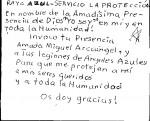 RAYO AZUL-SERVICIO LA PROTECCIÓN
En nombre de la Amadísima Pre-
sencia de Dios "Yo soy" en mi y en
toda la Humanidad!
Invoco tu Presencia
Amado Miguel Arcángel, y
a tus legiones de Angeles Azules
Para que me protejan a mi
a mis seres queridos
y a toda la Humanidad
Os doy gracias!